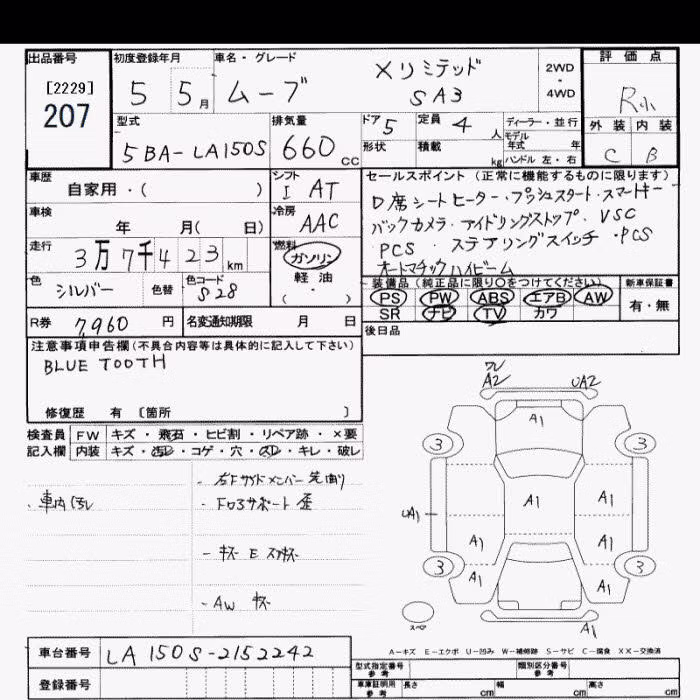 出品番号
[2229]
207
初度登録年月
5 5月
車名・グレード
ムーブ Xリミテッド
SA3
2WD
・
4WD
評価点
R小
外装 内装
C B
型式
5BA-LA150S
排気量
660cc
ドア 5
定員 4人
形状
積載 kg
ディーラー・並行
モデル年式 年
ハンドル 左・右
車歴
自家用・( )
シフト
I AT
車検
年 月( 日)
冷房
AAC
走行
3万7千423km
燃料
ガソリン
軽油
( ・ )
色
シルバー
色替
色コード
S28
R券 7,960円
名変通知期限 月 日
セールスポイント(正常に機能するものに限ります)
D席シートヒーター・プッシュスタート・スマートキー
バックカメラ・アイドリングストップ・VSC
PCS・ステアリングスイッチ・PCS
オートマチックハイビーム
装備品(純正品に限り○をつけてください)
PS PW ABS エアB AW
SR ナビ TV カワ
新車保証書
有・無
後日品
注意事項申告欄(不具合内容等は具体的に記入して下さい)
BLUE TOOTH
修復歴 有 〔箇所 〕
検査員 FW キズ・飛石・ヒビ割・リペア跡・×要
記入欄 内装 キズ・汚レ・コゲ・穴・スレ・キレ・破レ
・車内汚レ
・右Fサイドメンバー先曲り
・Fロアサポート歪
・キズ E スリキズ
・AW キズ
ワレ
A2 UA2
A1
3 3
A1
A1
UA1
A1
A1
3 3
A1
A1
スペア
A1
A-キズ E-エクボ U-凹み W-補修跡 S-サビ C-腐食 XX-交換済
車台番号 LA150S-2152242
登録番号
型式指定番号
参考
類別区分番号
参考
車庫証明用
参考
長さ cm 幅 cm 高さ cm